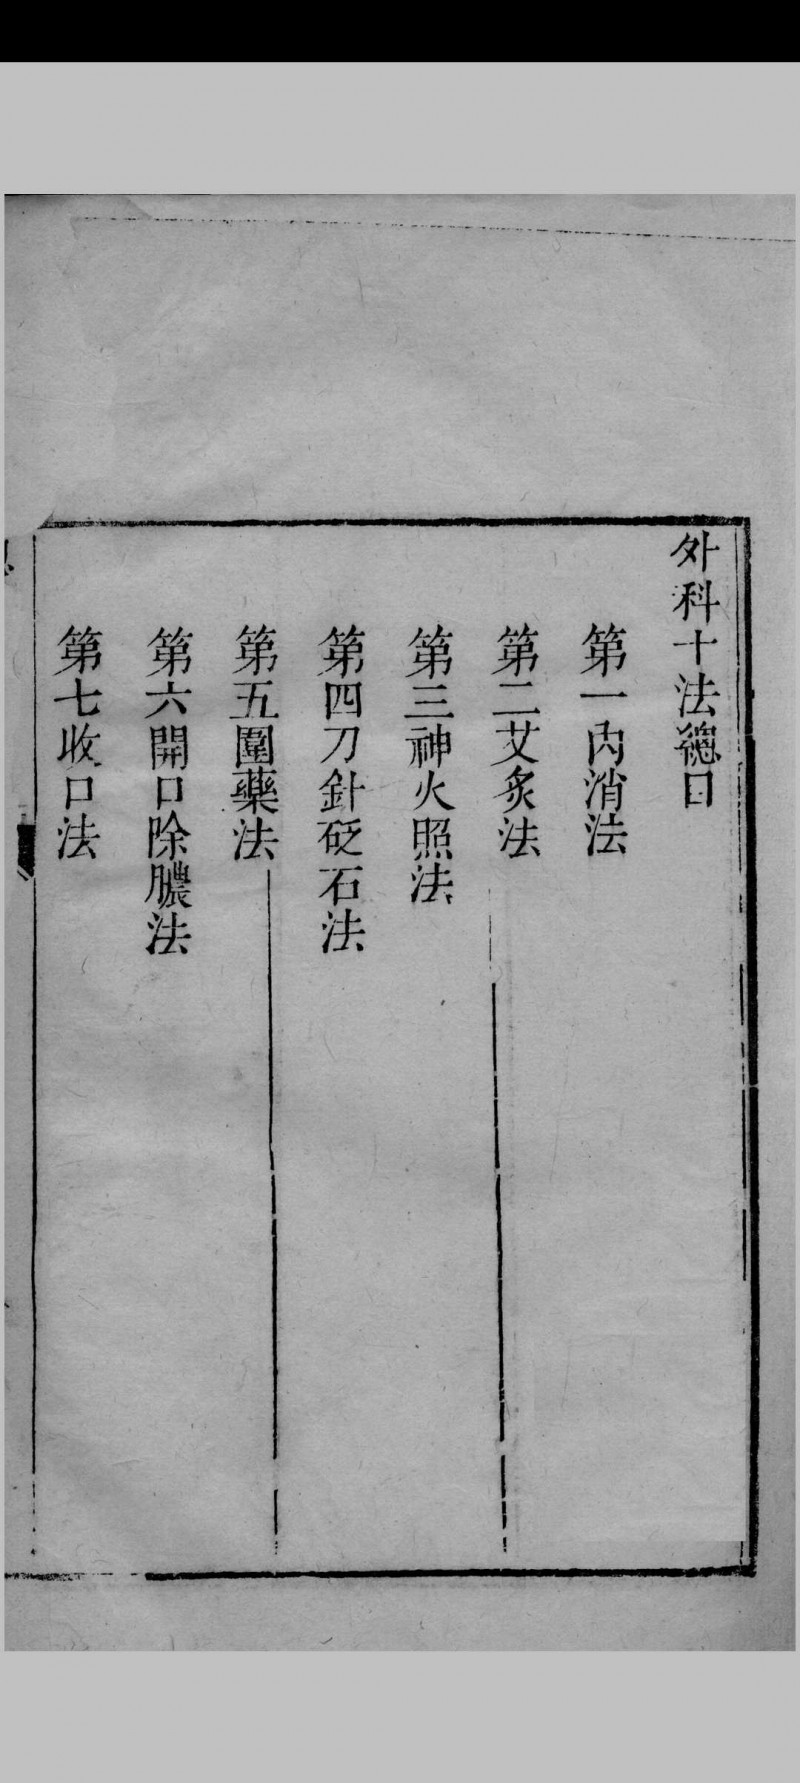 外科十法總目
第一內消法
第二艾炙法
第三神火照法
第四刀針砭石法
第五圍藥法
第六開口除膿法
第七收口法